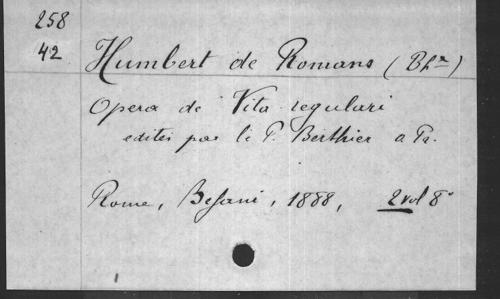 258
42
Humbert de Romans (Bhx)
Opera de Vita regulari
edités par le P. Berthier
Rome, Befani, 1888, 2 vol 8°